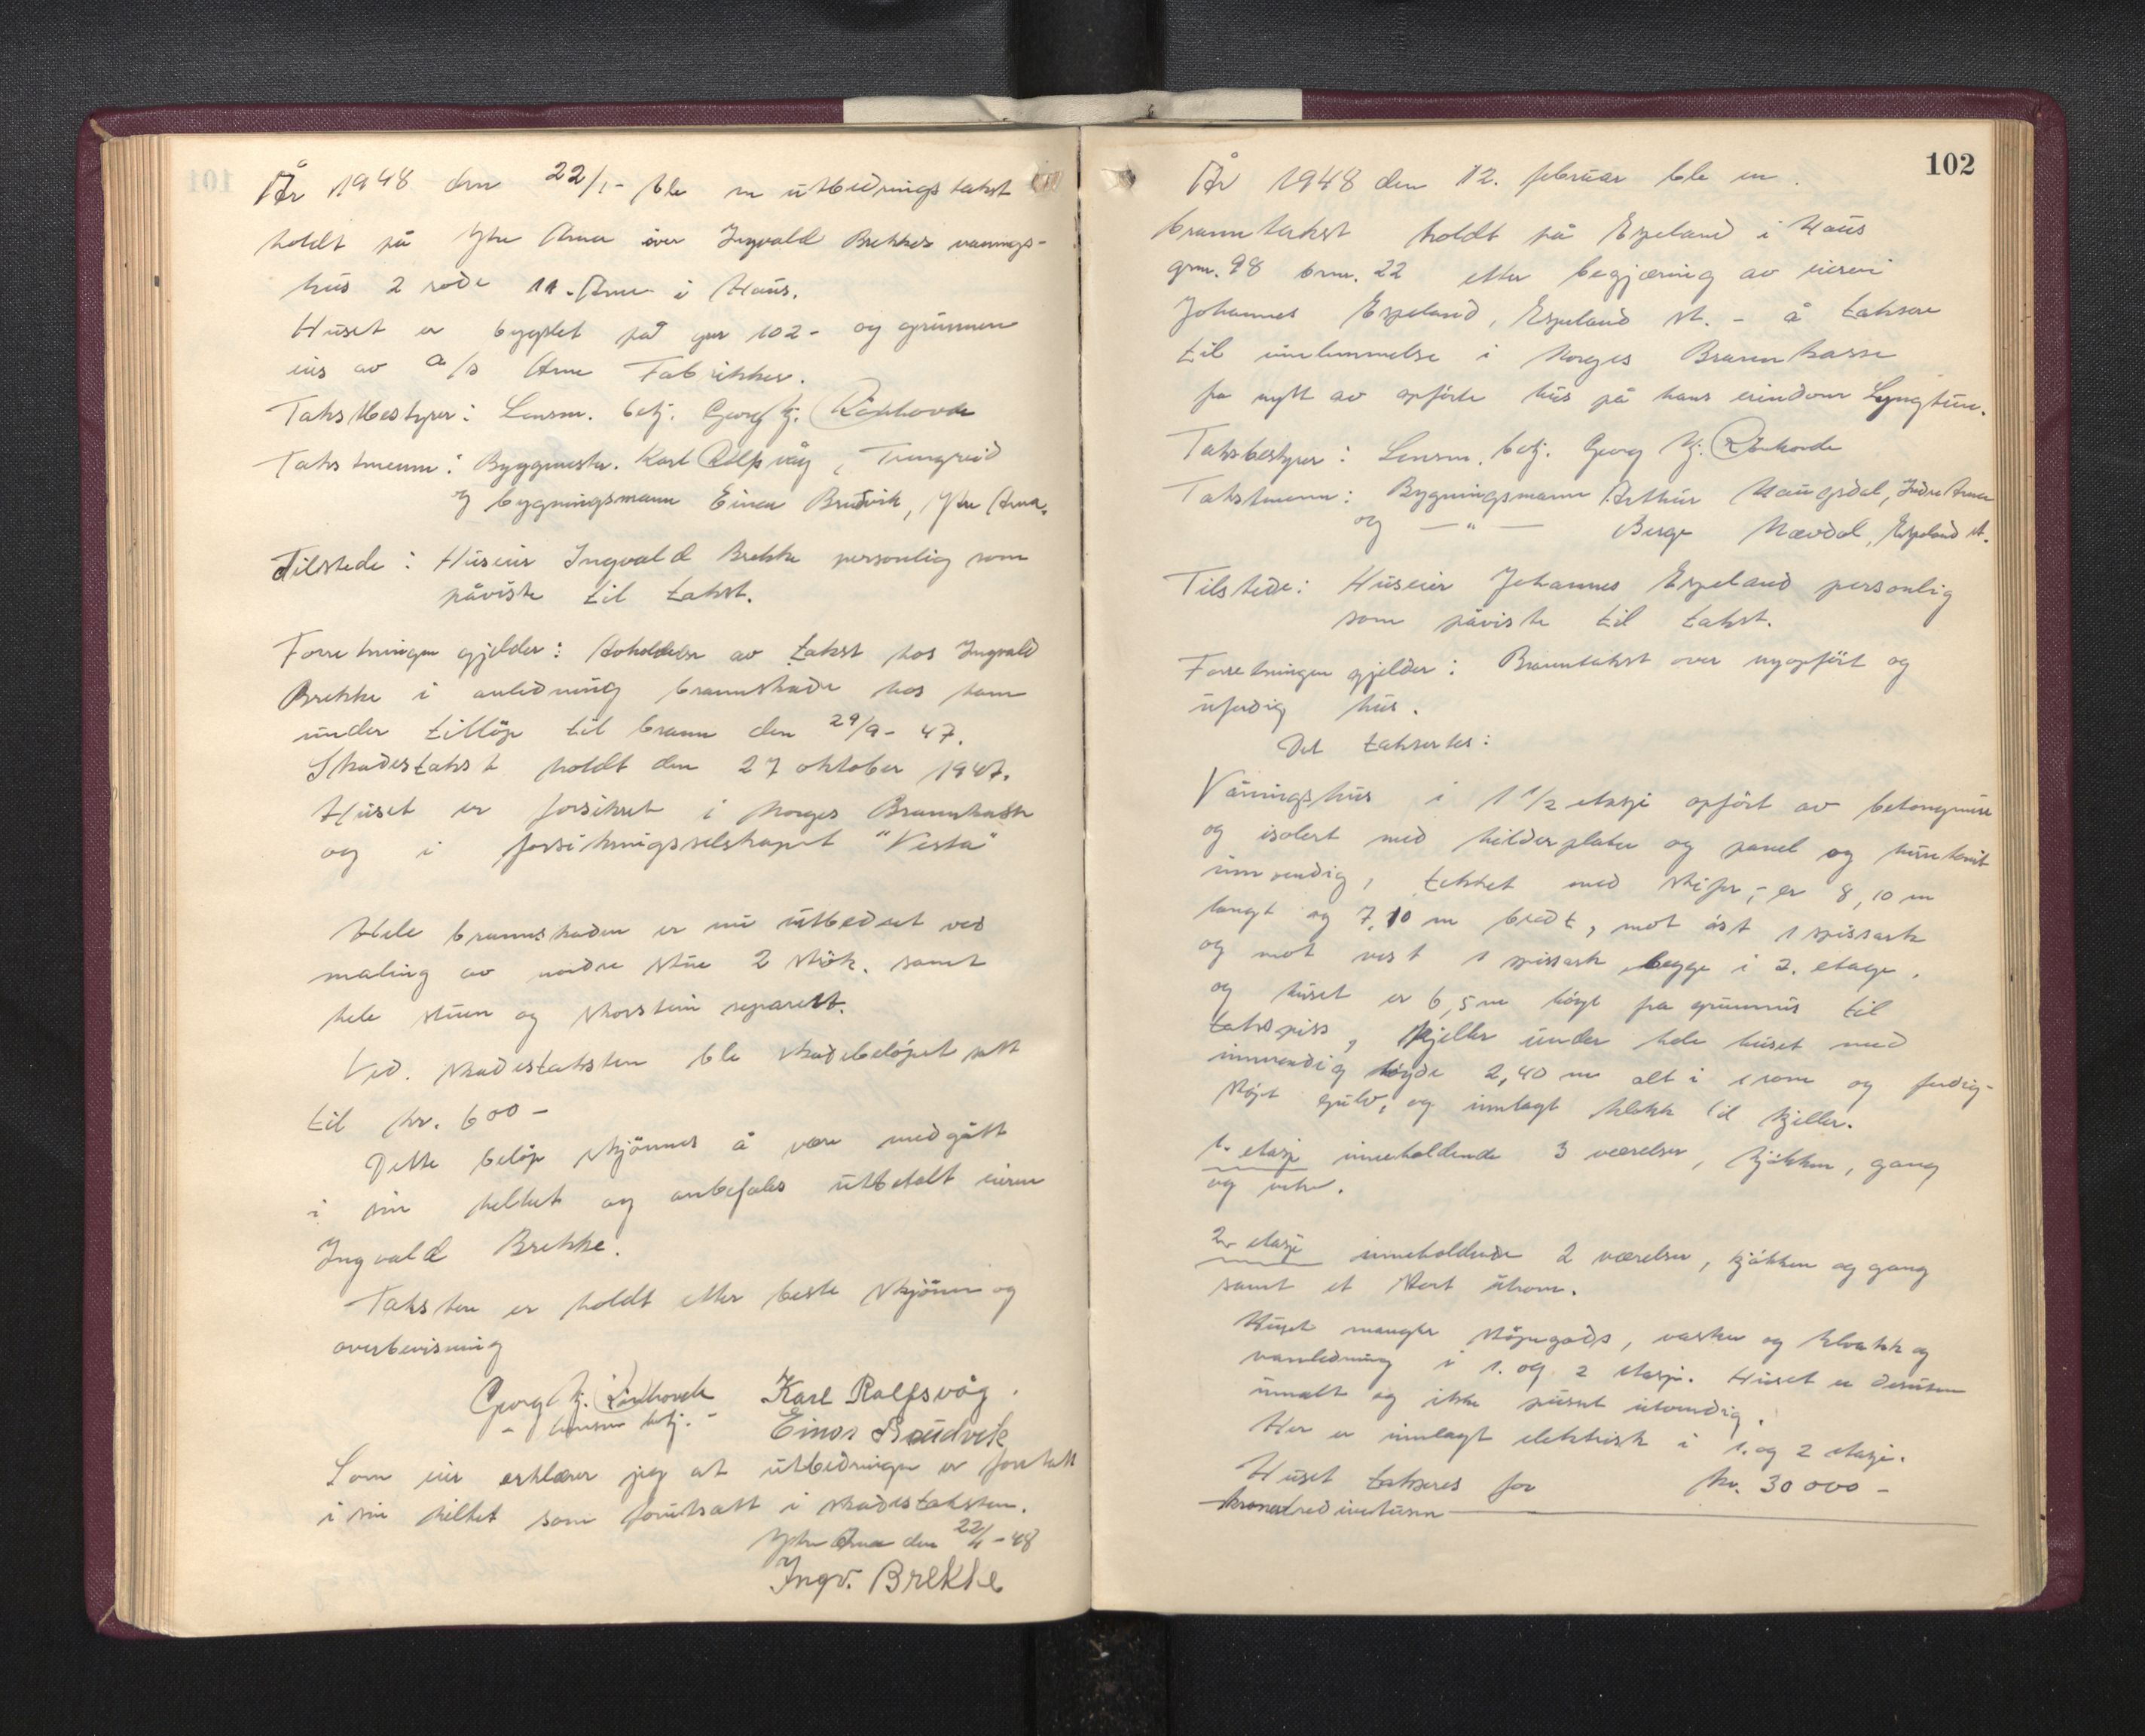 År 1948 den 22/1- ble en utbedringstakst
holdt på Ytre Arna över Ingvald Brekkes vaanings-
hus 2 rode 11. Arna i Haus.
Huset er bygslet på gnr 102- og grunnen
eies av a/s Arne Fabrikker.
Takstbestyrer: Lensm. betj. Georg Kj.
Takstmenn: Byggmester. Karl Rolfsvåg, Trengreid
og bygningsmann Einar Brudvik, Ytre Arna.
Tilstede: Huseier Ingvald Brekke personlig som
påviste til takst.
Forretningen gjelder: Avholdelse av takst hos Ingvald
Brekke i anledning brannskade hos ham
under tillöp til brann den 29/9- 47.
Skadestakst holdt den 27 oktober 1947.
Huset er forsikret i Norges Brannkasse
og i forsikringsselskapet "Vesta"
Hele brannskaden er nu utbedret ved
maling av nedre stue 2 strök. samt
hele stuen og skorstein reparert.
Ved. skadestaksten ble skadebelöpet satt
til kr. 600-
Dette belöp skjönnes å være medgått
i sin helhet og anbefales utbetalt eieren
Ingvald Brekke.
Taksten er holdt etter beste skjönn og
overbevisning
Georg Kj. Karl Rolfsvåg.
- lensm betj. - Einar Brudvik
Som eier erklærer jeg at utbedringen er foretatt
i sin helhet som forutsatt i skadestaksten.
Ytre Arna den 22/1-48
Ingv. Brekke
102
År 1948 den 12. februar ble en
branntakst holdt på Espeland i Haus
gnr. 98 bnr. 22 etter begjæring av eieren
Johannes Espeland, Espeland st. - å taksere
til innlemmelse i Norges Brannkasse
fra nytt av opförte hus på hans eiendom Lyngtun.
Takstbestyrer: Lensm. betj. Georg Kj.
Takstmenn: Bygningsmann Arthur Haugsdal, Indre Arna
og -"- Berge Nævdal, Espeland st.
Tilstede: Huseier Johannes Espeland personlig
som påviste til takst.
Forretningen gjelder: Branntakst over nyopfört og
uferdig hus.
Det takseres:
Våningshus i 1 1/2 etasje opfört av betongmur
og isolert med kilderplater og panel og huntonit
innvendig, tekket med skifer, - er 8,10 m
langt og 7,10 m bredt, mot öst 1 spissark
og mot vest 1 spissark begge i 2. etage.
og huset er 6,5 m höyt fra grunnmur til
takspiss, kjeller under hele huset med
innvendig höyde 2,40 m alt i 1 rom og ferdig-
stöpt gulv, og innlagt klokk til kjeller.
1. etasje inneholdende 3 værelser, kjökken, gang
og entre.
2. etasje inneholdende 2 værelser, kjökken og gang
samt et stort uterom.
Huset mangler stöpegods, vasker og klosett og
vannledning i 1. og 2 etasje. Huset er dessuten
umalt og ikke pusset utvendig.
Her er innlagt elektrisk i 1. og 2 etasje.
Huset takseres for kr. 30 000 -
kronertredivetusen